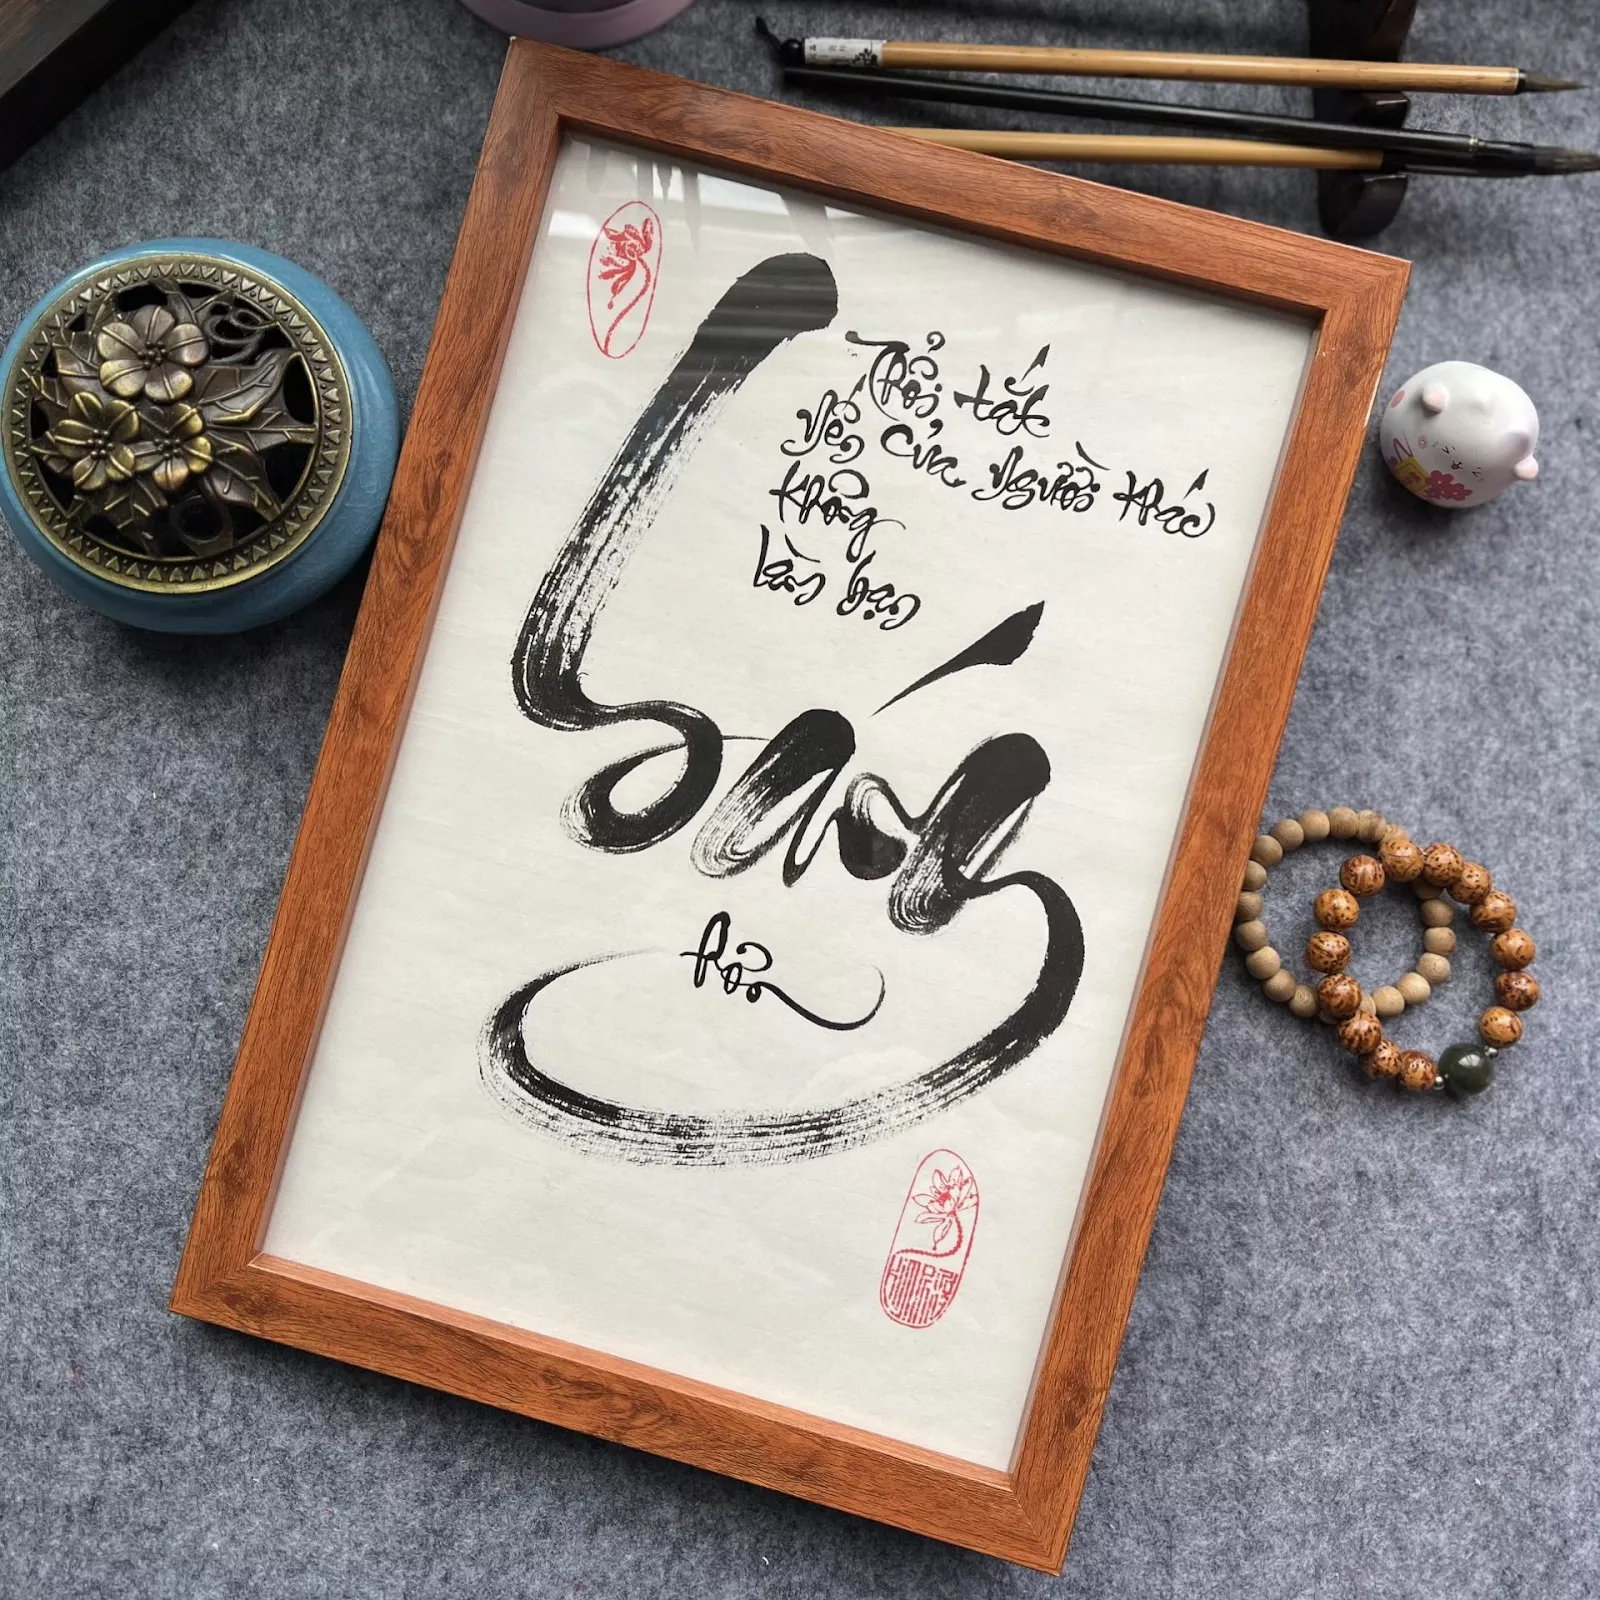 Thổi tắt
Nến của người khác
không
làm bạn
Sáng
hơn